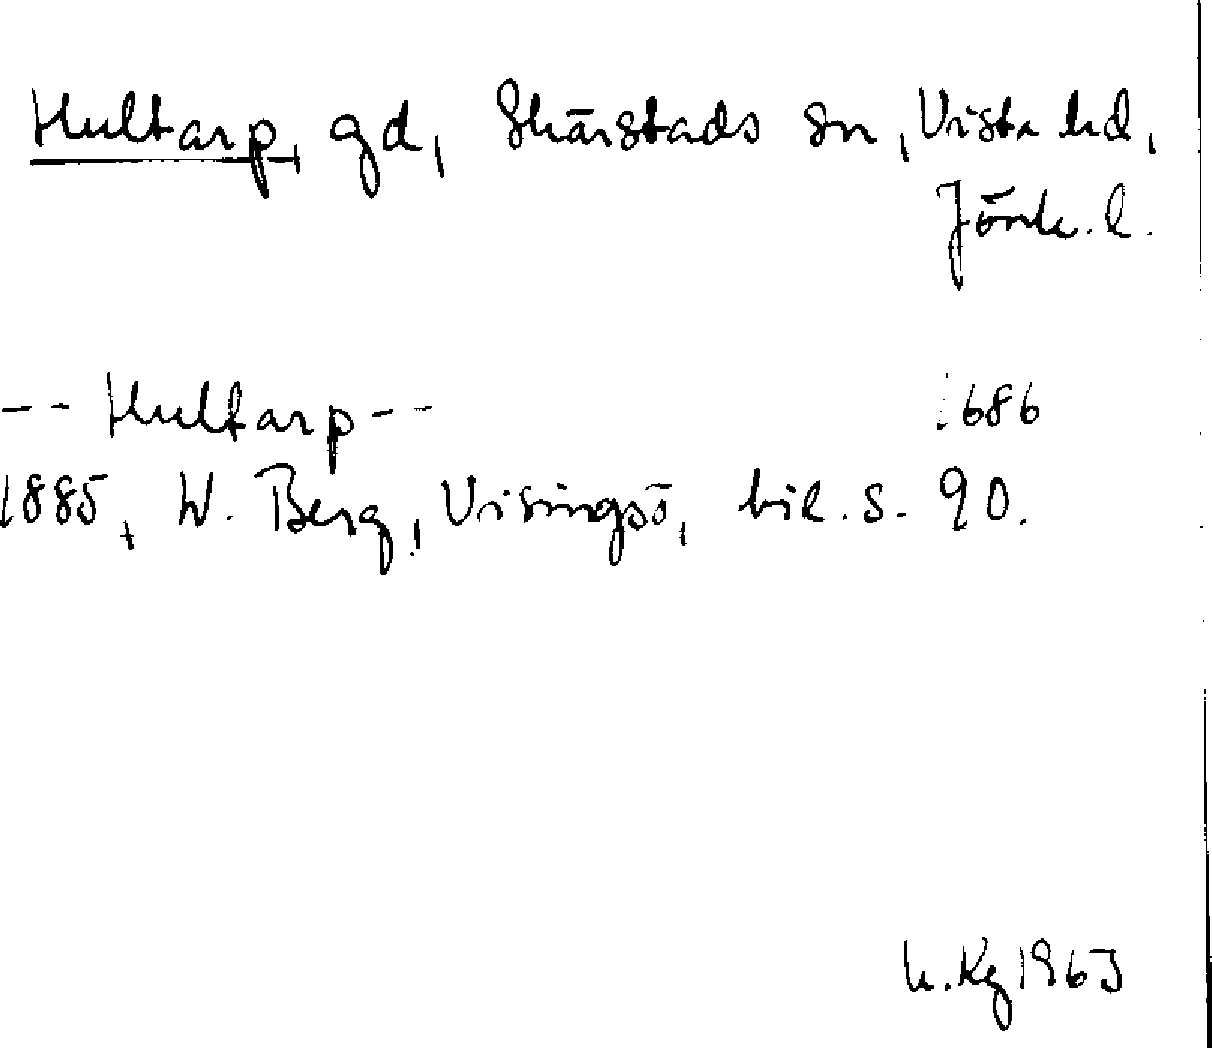 Hultarp, gd, Skärstads sn, Vista hd,
Jönk. l.
-- Hultarp -- 1686
1885, W. Berg, Visingsö, bil. s. 90.
1963